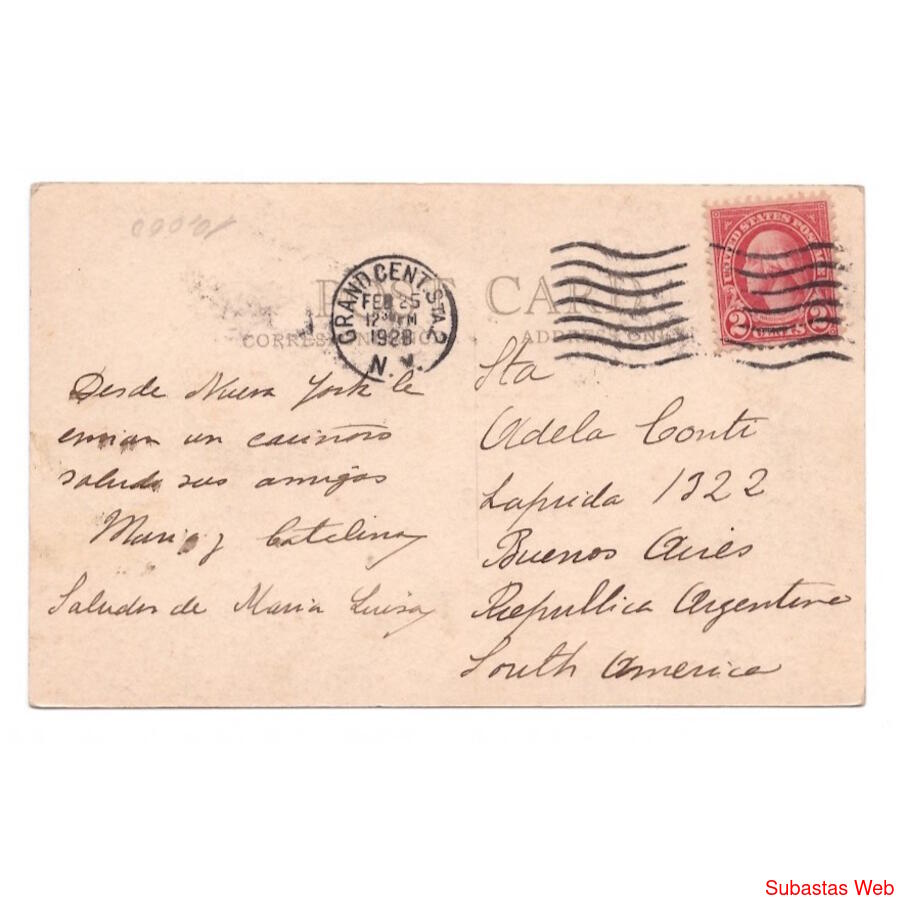 10.000
POST CARD
CORRESPONDENCE
ADDRESS ONLY
GRAND CENT. STA. 2
FEB 25
12 30 PM
1928
N. Y.
UNITED STATES POSTAGE
2 CENTS 2
Desde Nueva York le
envian un cariñoso
saludo sus amigos
Mario y Catalina
Saludos de Maria Luisa
Sta
Adela Conti
Laprida 1322
Buenos Aires
Republica Argentina
South America
Subastas Web